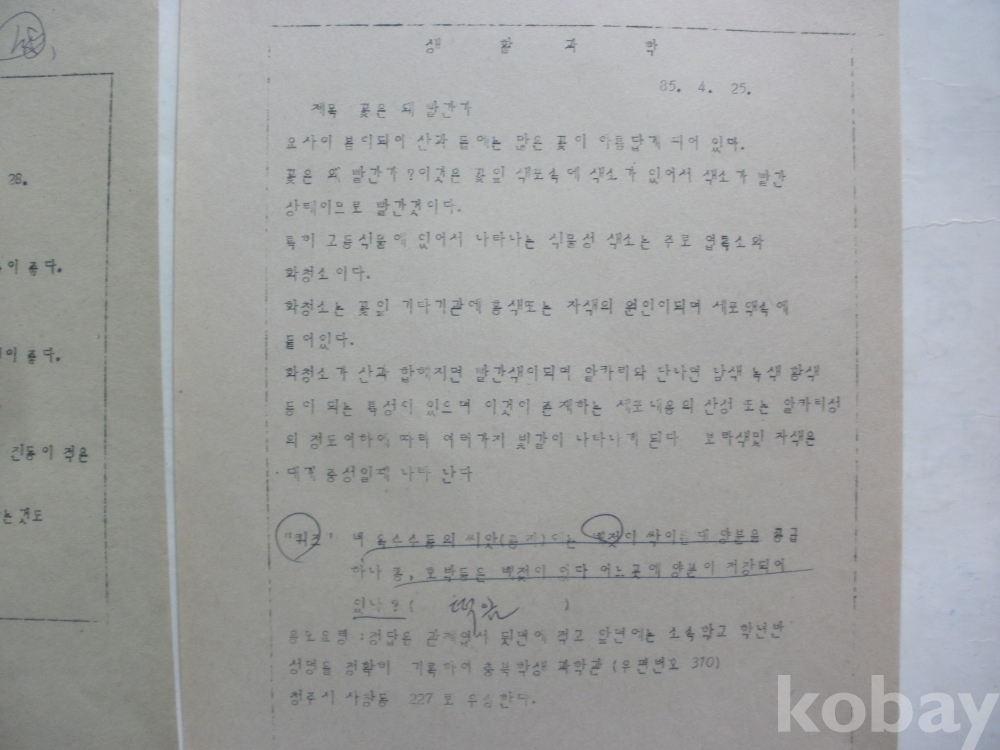 28.
이 좋다.
이 좋다.
진동이 적은
는것도
생 활 과 학
85. 4. 25.
제목 꽃은 왜 빨간가
요사이 봄이되어 산과 들에는 많은 꽃이 아름답게 피어 있다.
꽃은 왜 빨간가?이것은 꽃잎 세포속에 색소가 있어서 색소가 빨간
상태이므로 빨간것이다.
특히 고등식물에 있어서 나타나는 식물성 색소는 주로 엽록소와
화청소이다.
화청소는 꽃잎 기타기관에 홍색또는 자색의 원인이되며 세포액속에
들어있다.
화청소가 산과 합해지면 빨간색이되며 알카리와 만나면 남색 녹색 황색
등이 되는 특성이 있으며 이것이 존재하는 세포내용의 산성 또는 알카리성
의 정도여하에 따라 여러가지 빛깔이 나타나게 된다 보라색및 자색은
대개 중성일때 나타 난다
"퀴즈" 벼 옥수수등의 씨앗(종자)에는 배젖이 싹이틀때 양분을 공급
하나 콩, 호박등은 배젖이 없다 어느곳에 양분이 저장되어
있나? ( 떡잎 )
응모요령 :정답은 관제엽서 뒷면에 적고 앞면에는 소속학교 학년반
성명을 정확히 기록하여 충북학생 과학관 (우편번호 310)
청주시 사창동 227 로 우송한다.
kobay